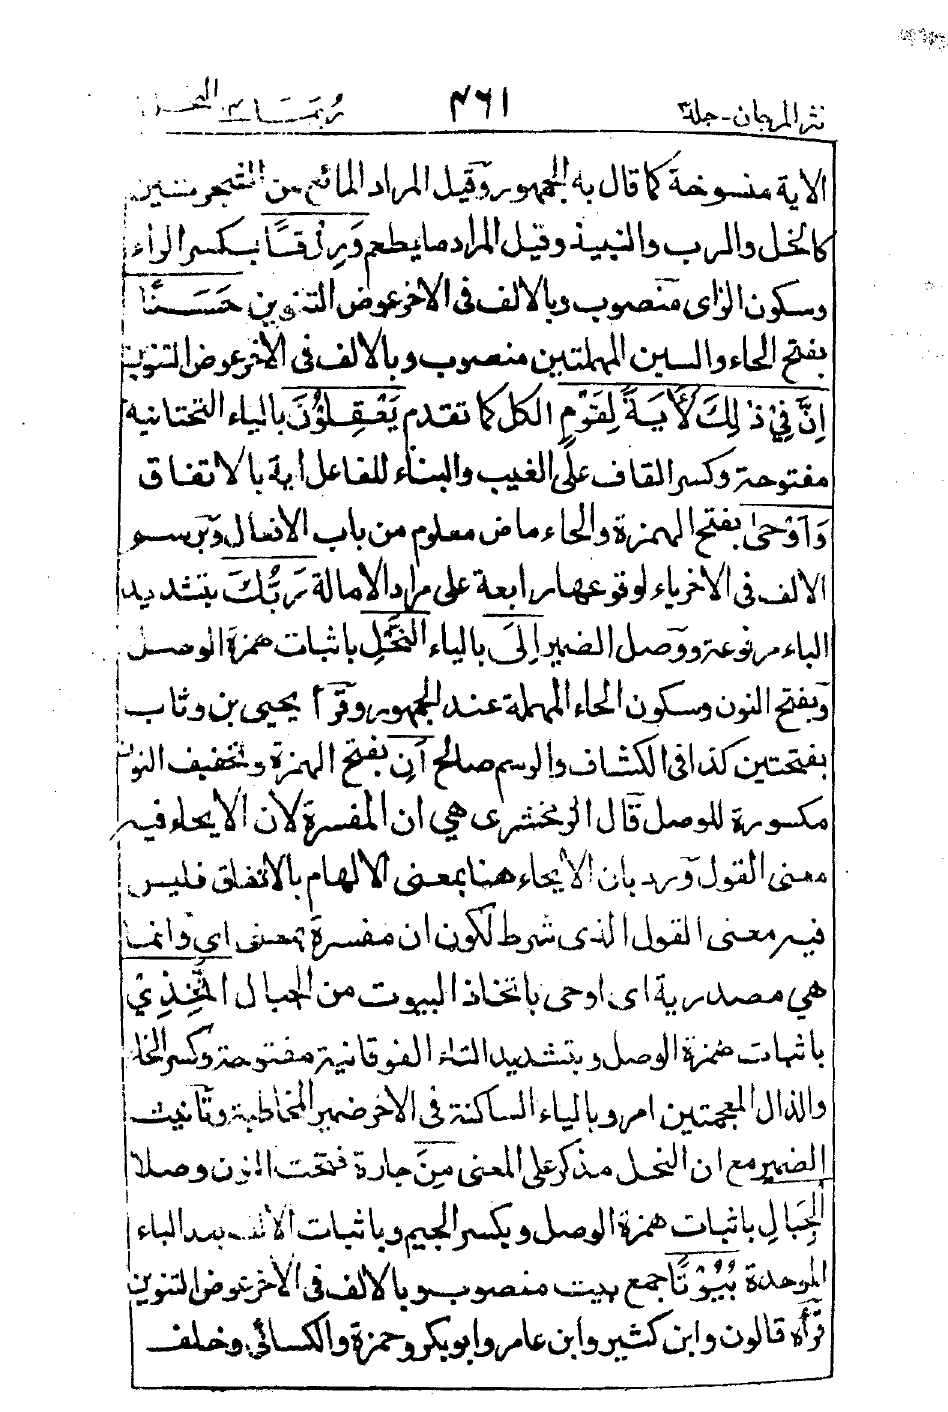 نثر المرجان - جلد ٣ ٤٦١ ربما ١٤ النحل
الاية منسوخة كما قال به الجمهور وقيل المراد المائع من الشجرتين
كالخل والرب والنبيذ وقيل المراد ما يطعم وَرِزْقًا بكسر الراء
وسكون الزاى منصوب وبالالف فى الاخر عوض التنوين حَسَنًا
بفتح الحاء والسين المهملتين منصوب وبالالف فى الاخر عوض التنوين
اِنَّ فِيْ ذٰلِكَ لَاٰيَةً لِقَوْمٍ الكل كما تقدم يَعْقِلُوْنَ بالياء التحتانية
مفتوحة وكسر القاف على الغيب والبناء للفاعل اية بالاتفاق
وَاَوْحٰى بفتح الهمزة والحاء ماض معلوم من باب الافعال وبرسم
الالف فى الاخر ياء لوقوعها رابعة على مراد الامالة رَبُّكَ بتشديد
الباء مرفوعة ووصل الضمير اِلَى بالياء النَّحْلِ باثبات همزة الوصل
وبفتح النون وسكون الحاء المهملة عند الجمهور وقرأ يحيى بن وثاب
بفتحتين كذا فى الكشاف والرسم صالح اَنِ بفتح الهمزة وتخفيف النون
مكسورة للوصل قال الزمخشرى هي ان المفسرة لان الايحاء فيه
معنى القول ورد بان الايحاء هنا بمعنى الالهام بالاتفاق فليس
فيه معنى القول الذى شرط لكون ان مفسرة بمعنى اي وانما
هي مصدرية اى اوحى باتخاذ البيوت من الجبال اتَّخِذِيْ
باثبات همزة الوصل وبتشديد التاء الفوقانية مفتوحة وكسر الخاء
والذال المعجمتين امر وبالياء الساكنة فى الاخر ضمير المخاطبة وتأنيث
الضمير مع ان النحل مذكر على المعنى مِنَ جارة فتحت النون وصلا
الْجِبَالِ باثبات همزة الوصل وبكسر الجيم وباثبات الالف بعد الباء
الموحدة بُيُوْتًا جمع بيت منصوب وبالالف فى الاخر عوض التنوين
قرأه قالون وابن كثير وابن عامر وابوبكر وحمزة والكسائي وخلف